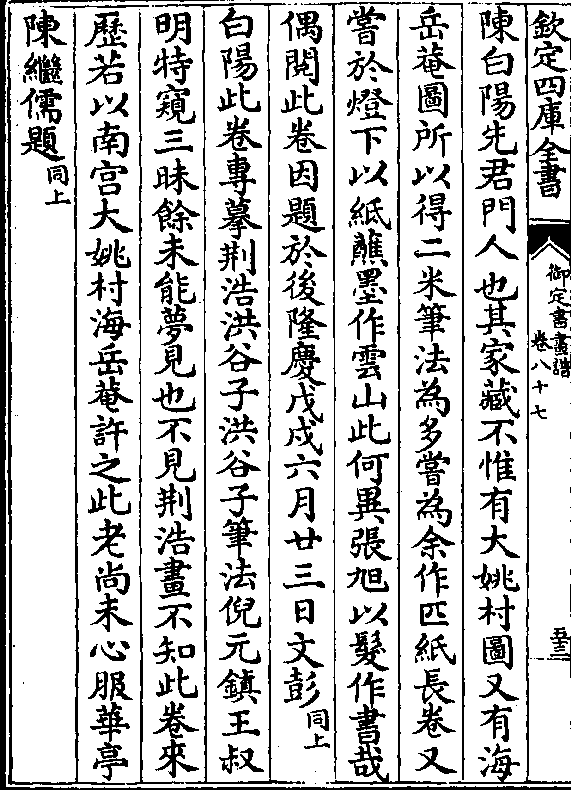 欽定四庫全書
御定書畫譜
卷八十七
五三
陳白陽先君門人也其家藏不惟有大姚村圖又有海
岳菴圖所以得二米筆法為多嘗為余作匹紙長卷又
嘗於燈下以紙蘸墨作雲山此何異張旭以髮作書哉
偶閱此卷因題於後隆慶戊戍六月廿三日文彭同上
白陽此卷專摹荆浩洪谷子洪谷子筆法倪元鎮王叔
明特窺三昧餘未能夢見也不見荆浩畫不知此卷來
歷若以南宫大姚村海岳菴許之此老尚未心服華亭
陳繼儒題同上